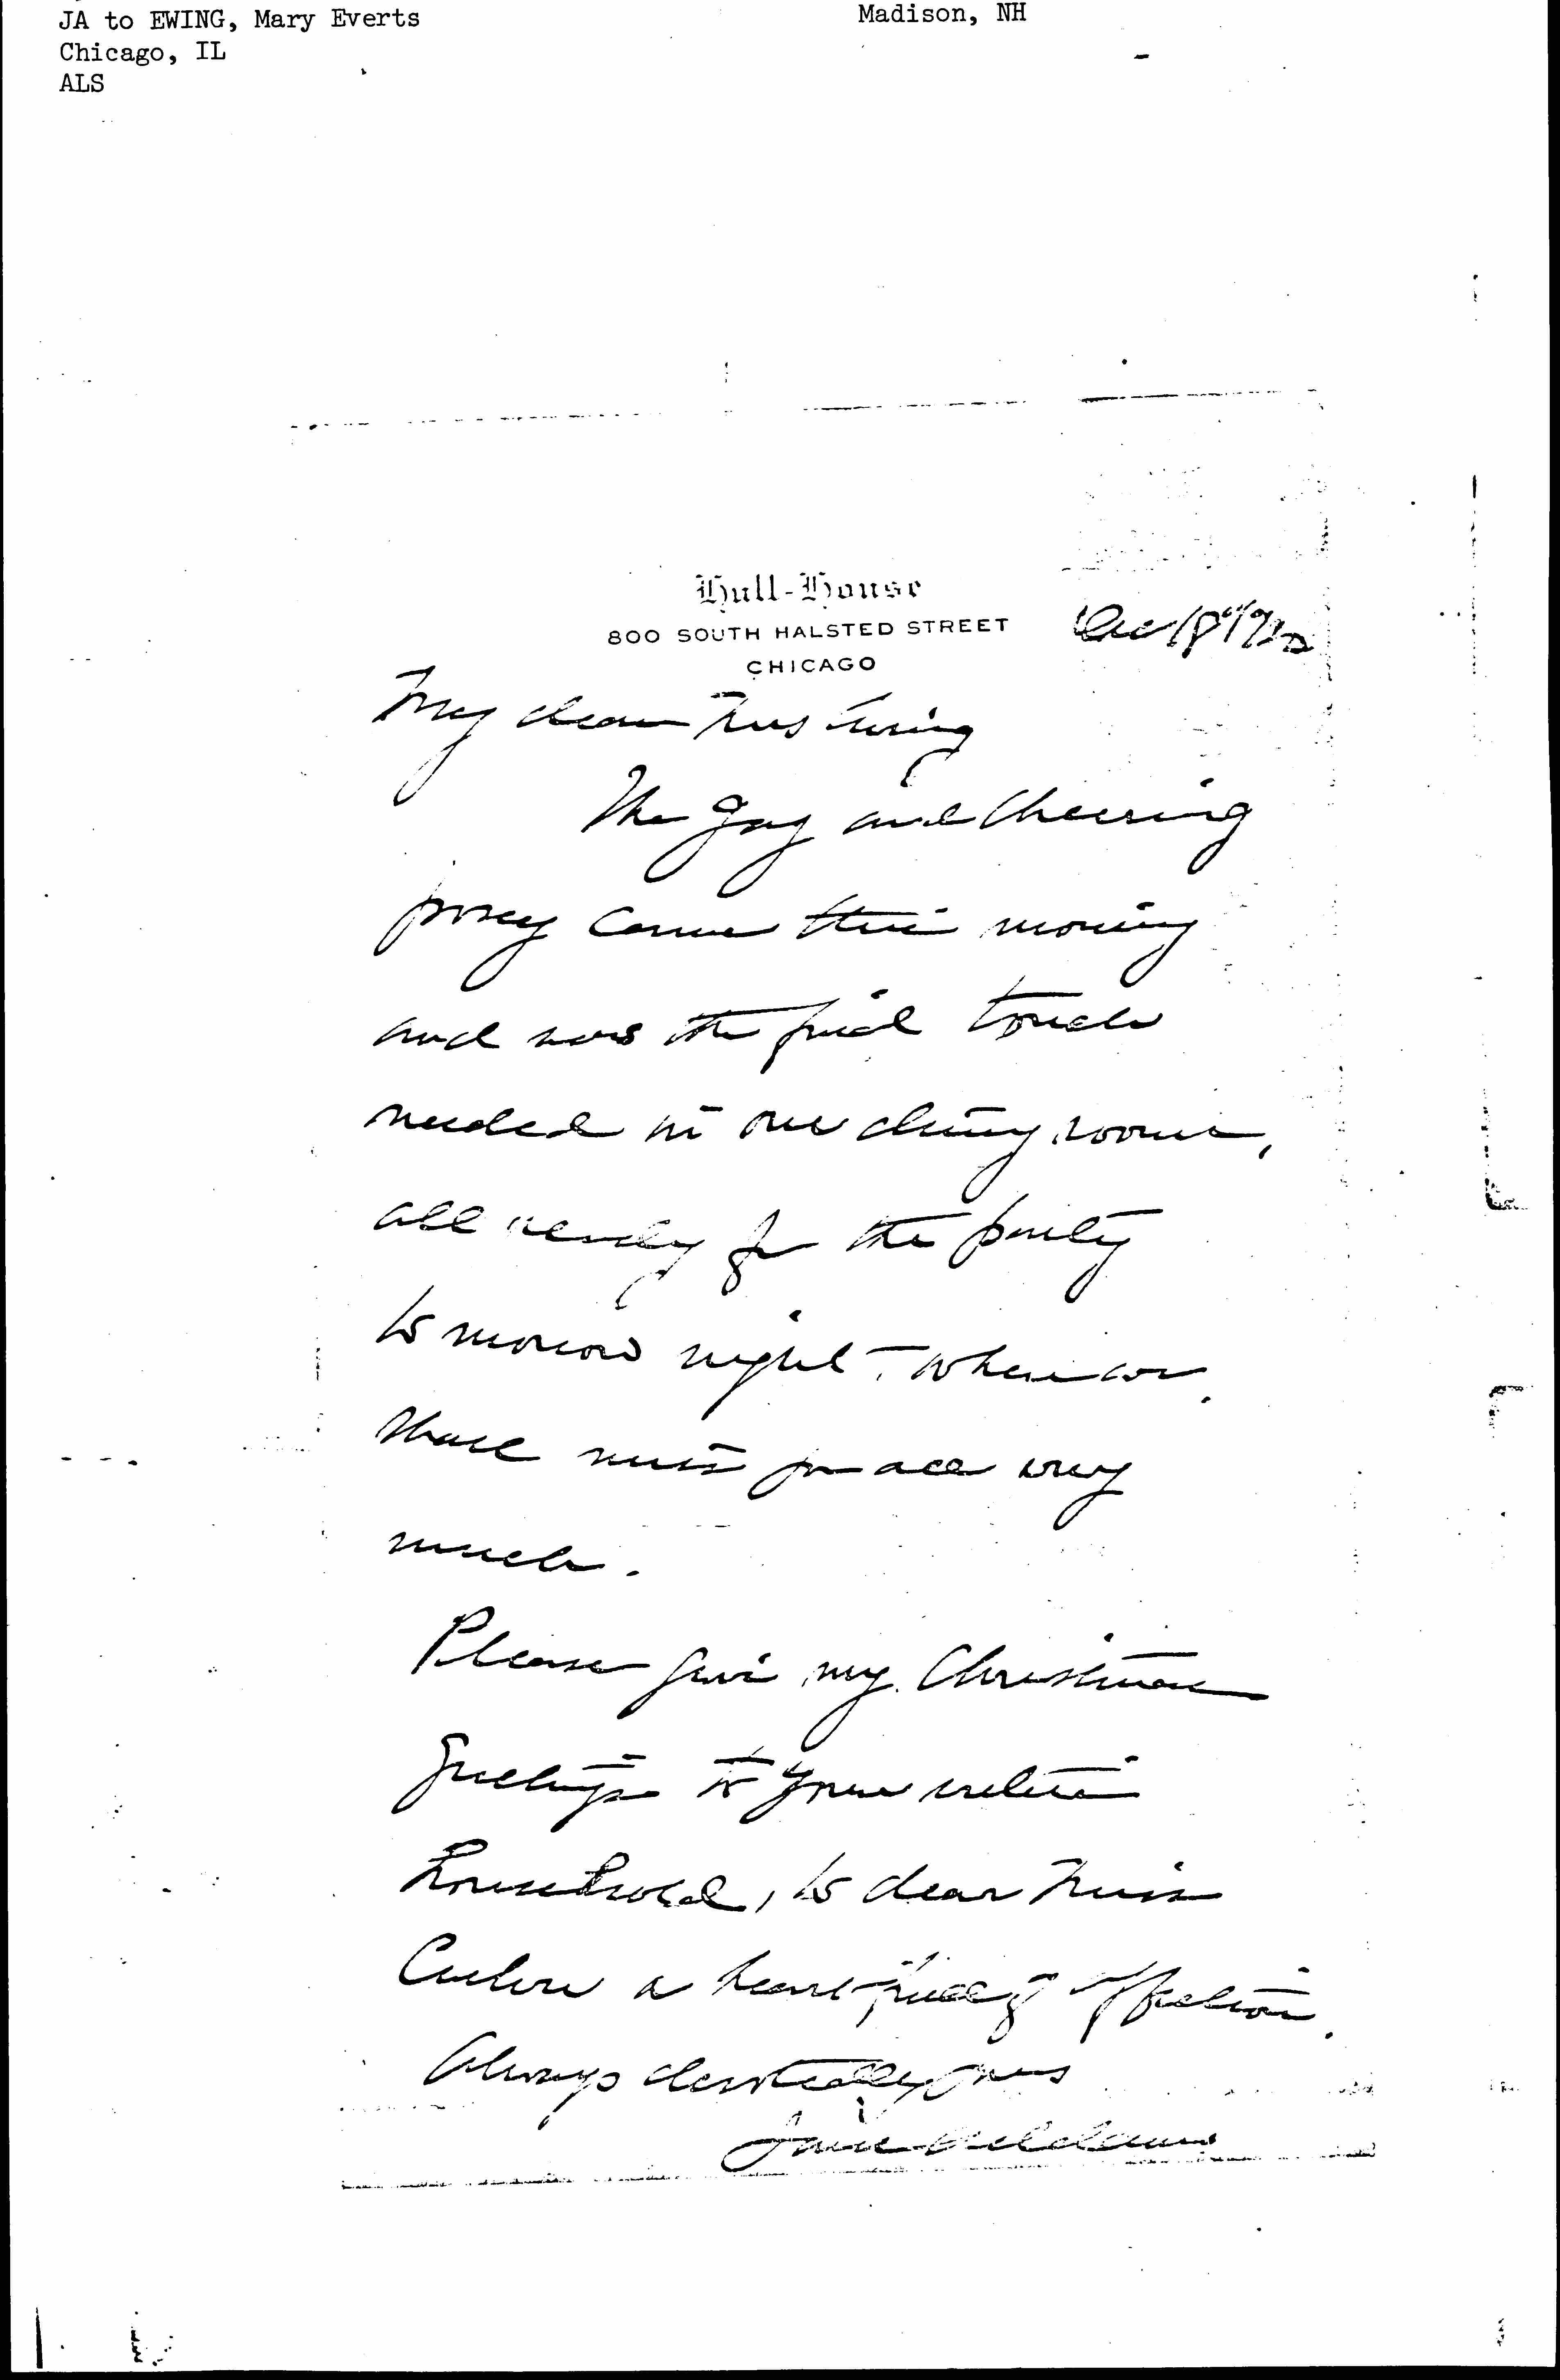 JA to EWING, Mary Everts Madison, NH
Chicago, IL
ALS
Hull-House
800 SOUTH HALSTED STREET
CHICAGO
Dec 18" 19
My dear Mrs Ewing
The gay and cheering
posey came this morning
and was the final touch
needed in our dining room,
all ready for the party
to morrow night - when we
shall miss you all very
much.
Please give my Christmas
greetings to your entire
household, to dear Miss
Culver a heart full of affection.
Always devotedly yours
Jane Addams